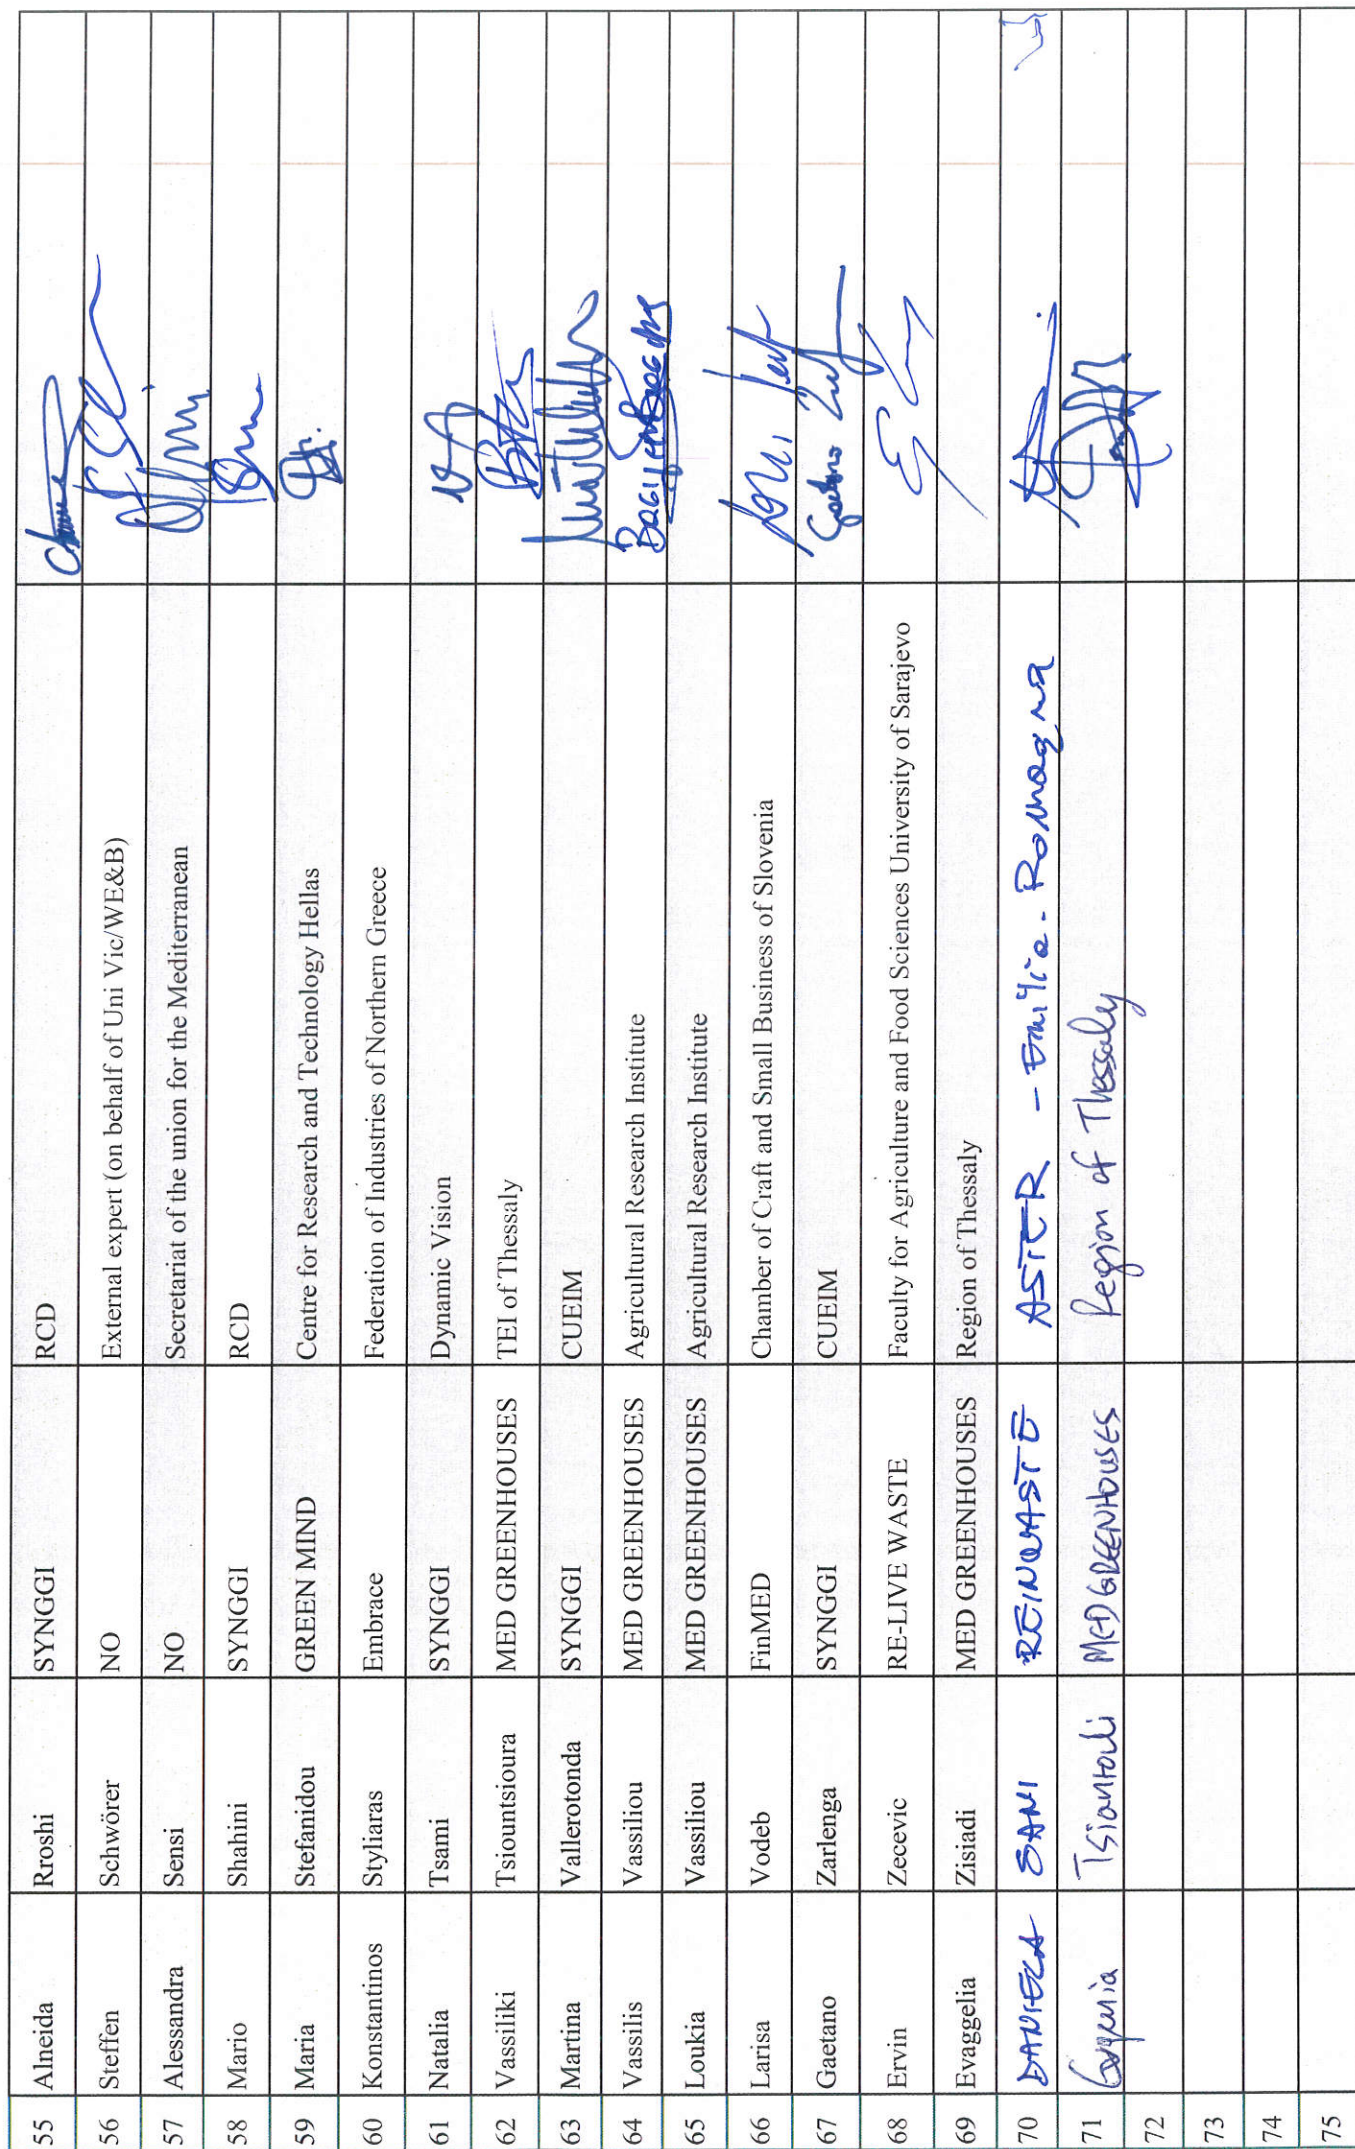 55 Alneida Rroshi SYNGGI RCD
56 Steffen Schwörer NO External expert (on behalf of Uni Vic/WE&B)
57 Alessandra Sensi NO Secretariat of the union for the Mediterranean
58 Mario Shahini SYNGGI RCD
59 Maria Stefanidou GREEN MIND Centre for Research and Technology Hellas
60 Konstantinos Styliaras Embrace Federation of Industries of Northern Greece
61 Natalia Tsami SYNGGI Dynamic Vision
62 Vassiliki Tsiountsioura MED GREENHOUSES TEI of Thessaly
63 Martina Vallerotonda SYNGGI CUEIM
64 Vassilis Vassiliou MED GREENHOUSES Agricultural Research Institute
65 Loukia Vassiliou MED GREENHOUSES Agricultural Research Institute
66 Larisa Vodeb FinMED Chamber of Craft and Small Business of Slovenia
67 Gaetano Zarlenga SYNGGI CUEIM
68 Ervin Zecevic RE-LIVE WASTE Faculty for Agriculture and Food Sciences University of Sarajevo
69 Evaggelia Zisiadi MED GREENHOUSES Region of Thessaly
70 DANIELA SANI REINWASTE ASTER - Emilia-Romagna
71 MED GREENHOUSES Region of Thessaly
72
73
74
75